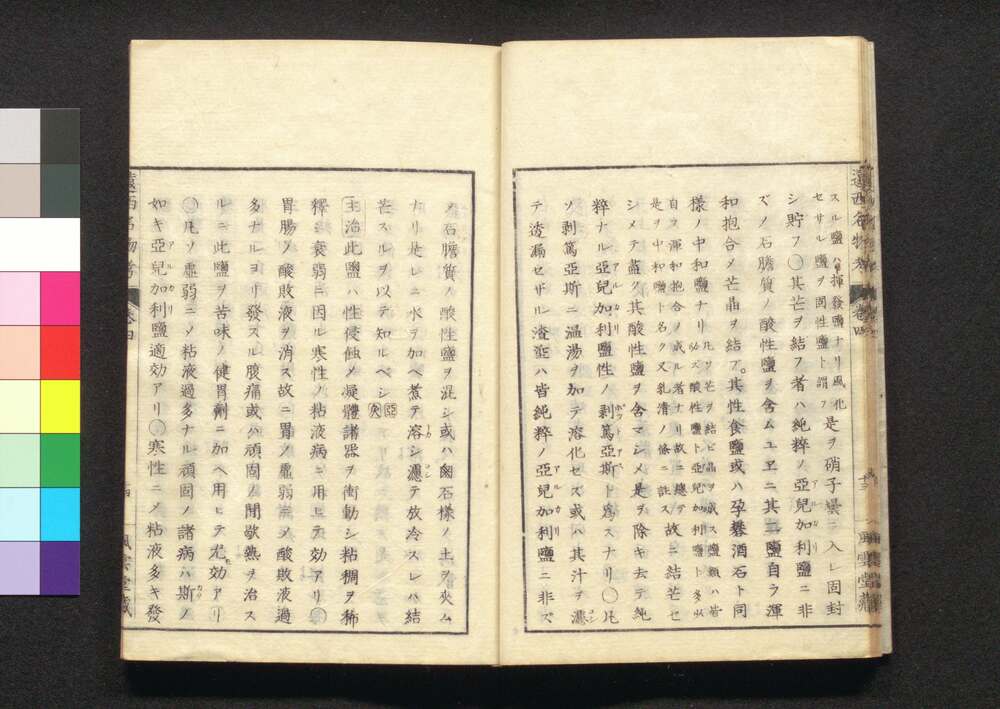 スル鹽ハ揮發鹽ナリ風化
セサル鹽ヲ固性鹽ト謂フ
是ヲ硝子曇ニ入レ固封
シ貯フ〇其芒ヲ結フ者ハ純粹ノ亞兒加利鹽ニ非
ズノ石膽質ノ酸性鹽ヲ含ムユヱニ其二鹽自ラ渾
和抱合メ芒晶ヲ結フ。其性食鹽或ハ孕礬酒石ト同
樣ノ中和鹽ナリ
凡ソ芒ヲ結ビ晶ヲ成ス鹽類ハ皆
必ズ酸性鹽ト亞兒加利鹽ト多少
自ラ渾和抱合ノ成ル者ナリ故ニ總テ
是ヲ中和鹽ト名クス乳清ノ條ニ註ス
故ニ結芒セ
シメテ盡ク其酸性鹽ヲ含マシメ是ヲ除キ去テ純
粹ナル亞兒加利鹽性ノ剥篤亞斯ト爲スナリ〇凡
ソ剥篤亞斯ニ溫湯ヲ加テ溶化セズ或ハ其汁ヲ濾
テ透漏セザル渣滓ハ皆純粹ノ亞兒加利鹽ニ非ズ
ノ石膽質ノ酸性鹽ヲ混シ或ハ鹵石樣ノ土ヲ夾ム
ナリ是レニ水ヲ加ヘ煮テ溶シ濾テ放冷スレハ結
芒スルヲ以テ知ルベシ
主治此鹽ハ性侵蝕メ凝體諸器ヲ衝動シ粘稠ヲ稀
釋シ衰弱ニ因ル寒性ノ粘液病ニ用ヒテ効アリ〇
胃腸ノ酸敗液ヲ消ス故ニ胃ノ虛弱ニメ酸敗液過
多ナルヨリ發スル腹痛或ハ頑固ノ間歇熱ヲ治ス
ルニ此鹽ヲ苦味ノ健胃劑ニ加ヘ用ヒテ尤効アリ
〇凡ソ虛弱ニメ粘液過多ナル頑固ノ諸病ハ斯ノ
如キ亞兒加利鹽適効アリ〇寒性ニメ粘液多キ發